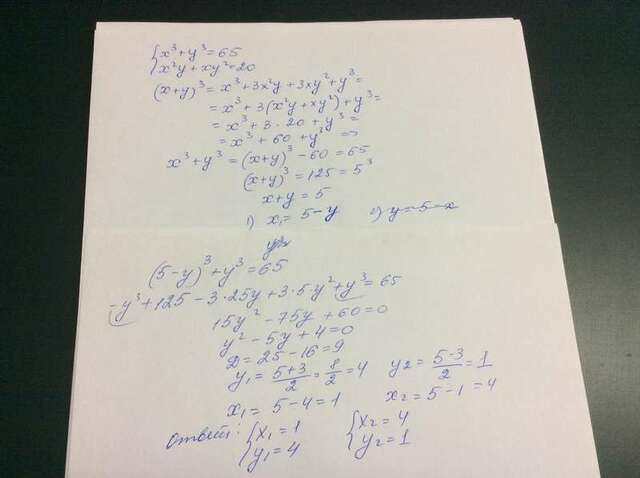 {x³+y³=65
{x²y+xy²=20
(x+y)³ = x³+3x²y+3xy²+y³=
= x³+3(x²y+xy²)+y³=
= x³+3·20+y³=
= x³+60+y³ =>
x³+y³=(x+y)³-60=65
(x+y)³=125=5³
x+y=5
1) x₁=5-y 2) y=5-x
(5-y)³+y³=65
-y³+125-3·25y+3·5·y²+y³=65
15y²-75y+60=0
y²-5y+4=0
D=25-16=9
y₁=(5+3)/2=8/2=4 y₂=(5-3)/2=1
x₁=5-4=1 x₂=5-1=4
Ответ: {x₁=1 {x₂=4
{y₁=4 {y₂=1